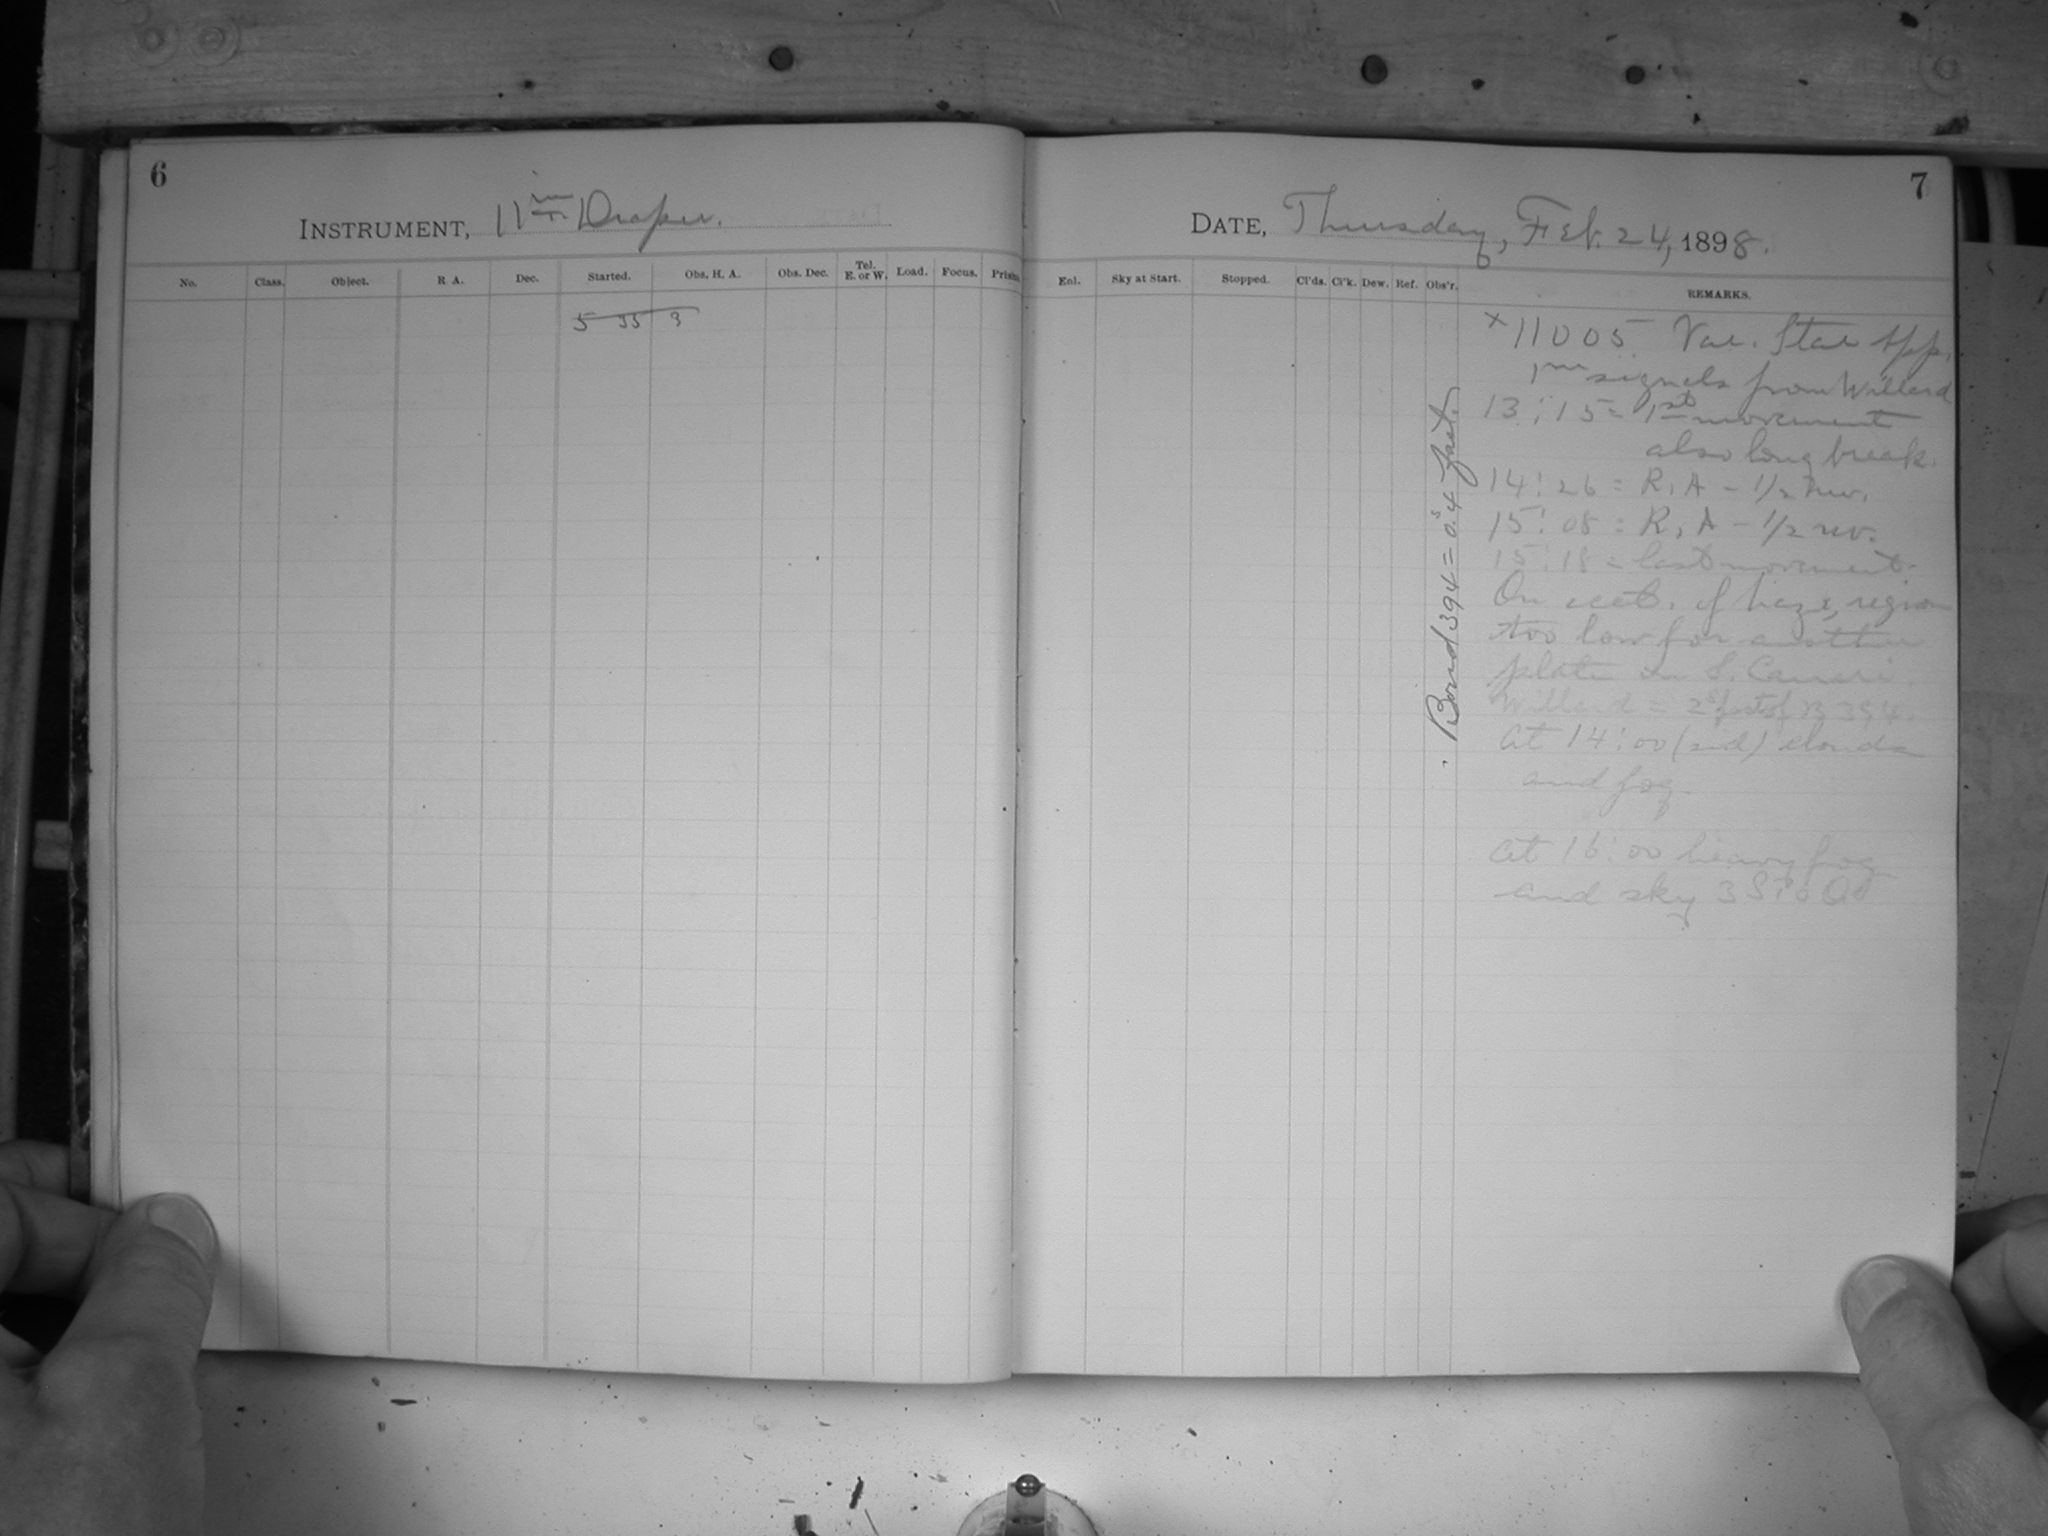 6
INSTRUMENT, 11 in Draper.
No. Class. Object. R A. Dec. Started. Obs. H. A. Obs. Dec. Tel. E. or W. Load. Focus. Prism
5 35 3
7
DATE, Thursday, Feb. 24, 1898.
Enl. Sky at Start. Stopped. Cl'ds. Cl'k. Dew. Ref. Obs'r. REMARKS.
Bond 394 = 0.s4 fast.
x 11005 Var. Star App.
1m signals from Willard
13:15 = 1st movement
also long break.
14:26 = R, A - 1/2 rev.
15:08 = R, A - 1/2 rev.
15:18 = last movement.
On acct. of haze, region
too low for another
plate on S. Cancri.
Willard = 2s fast of B 394.
at 14:00 (sid) clouds
and fog.
at 16:00 heavy fog
and sky